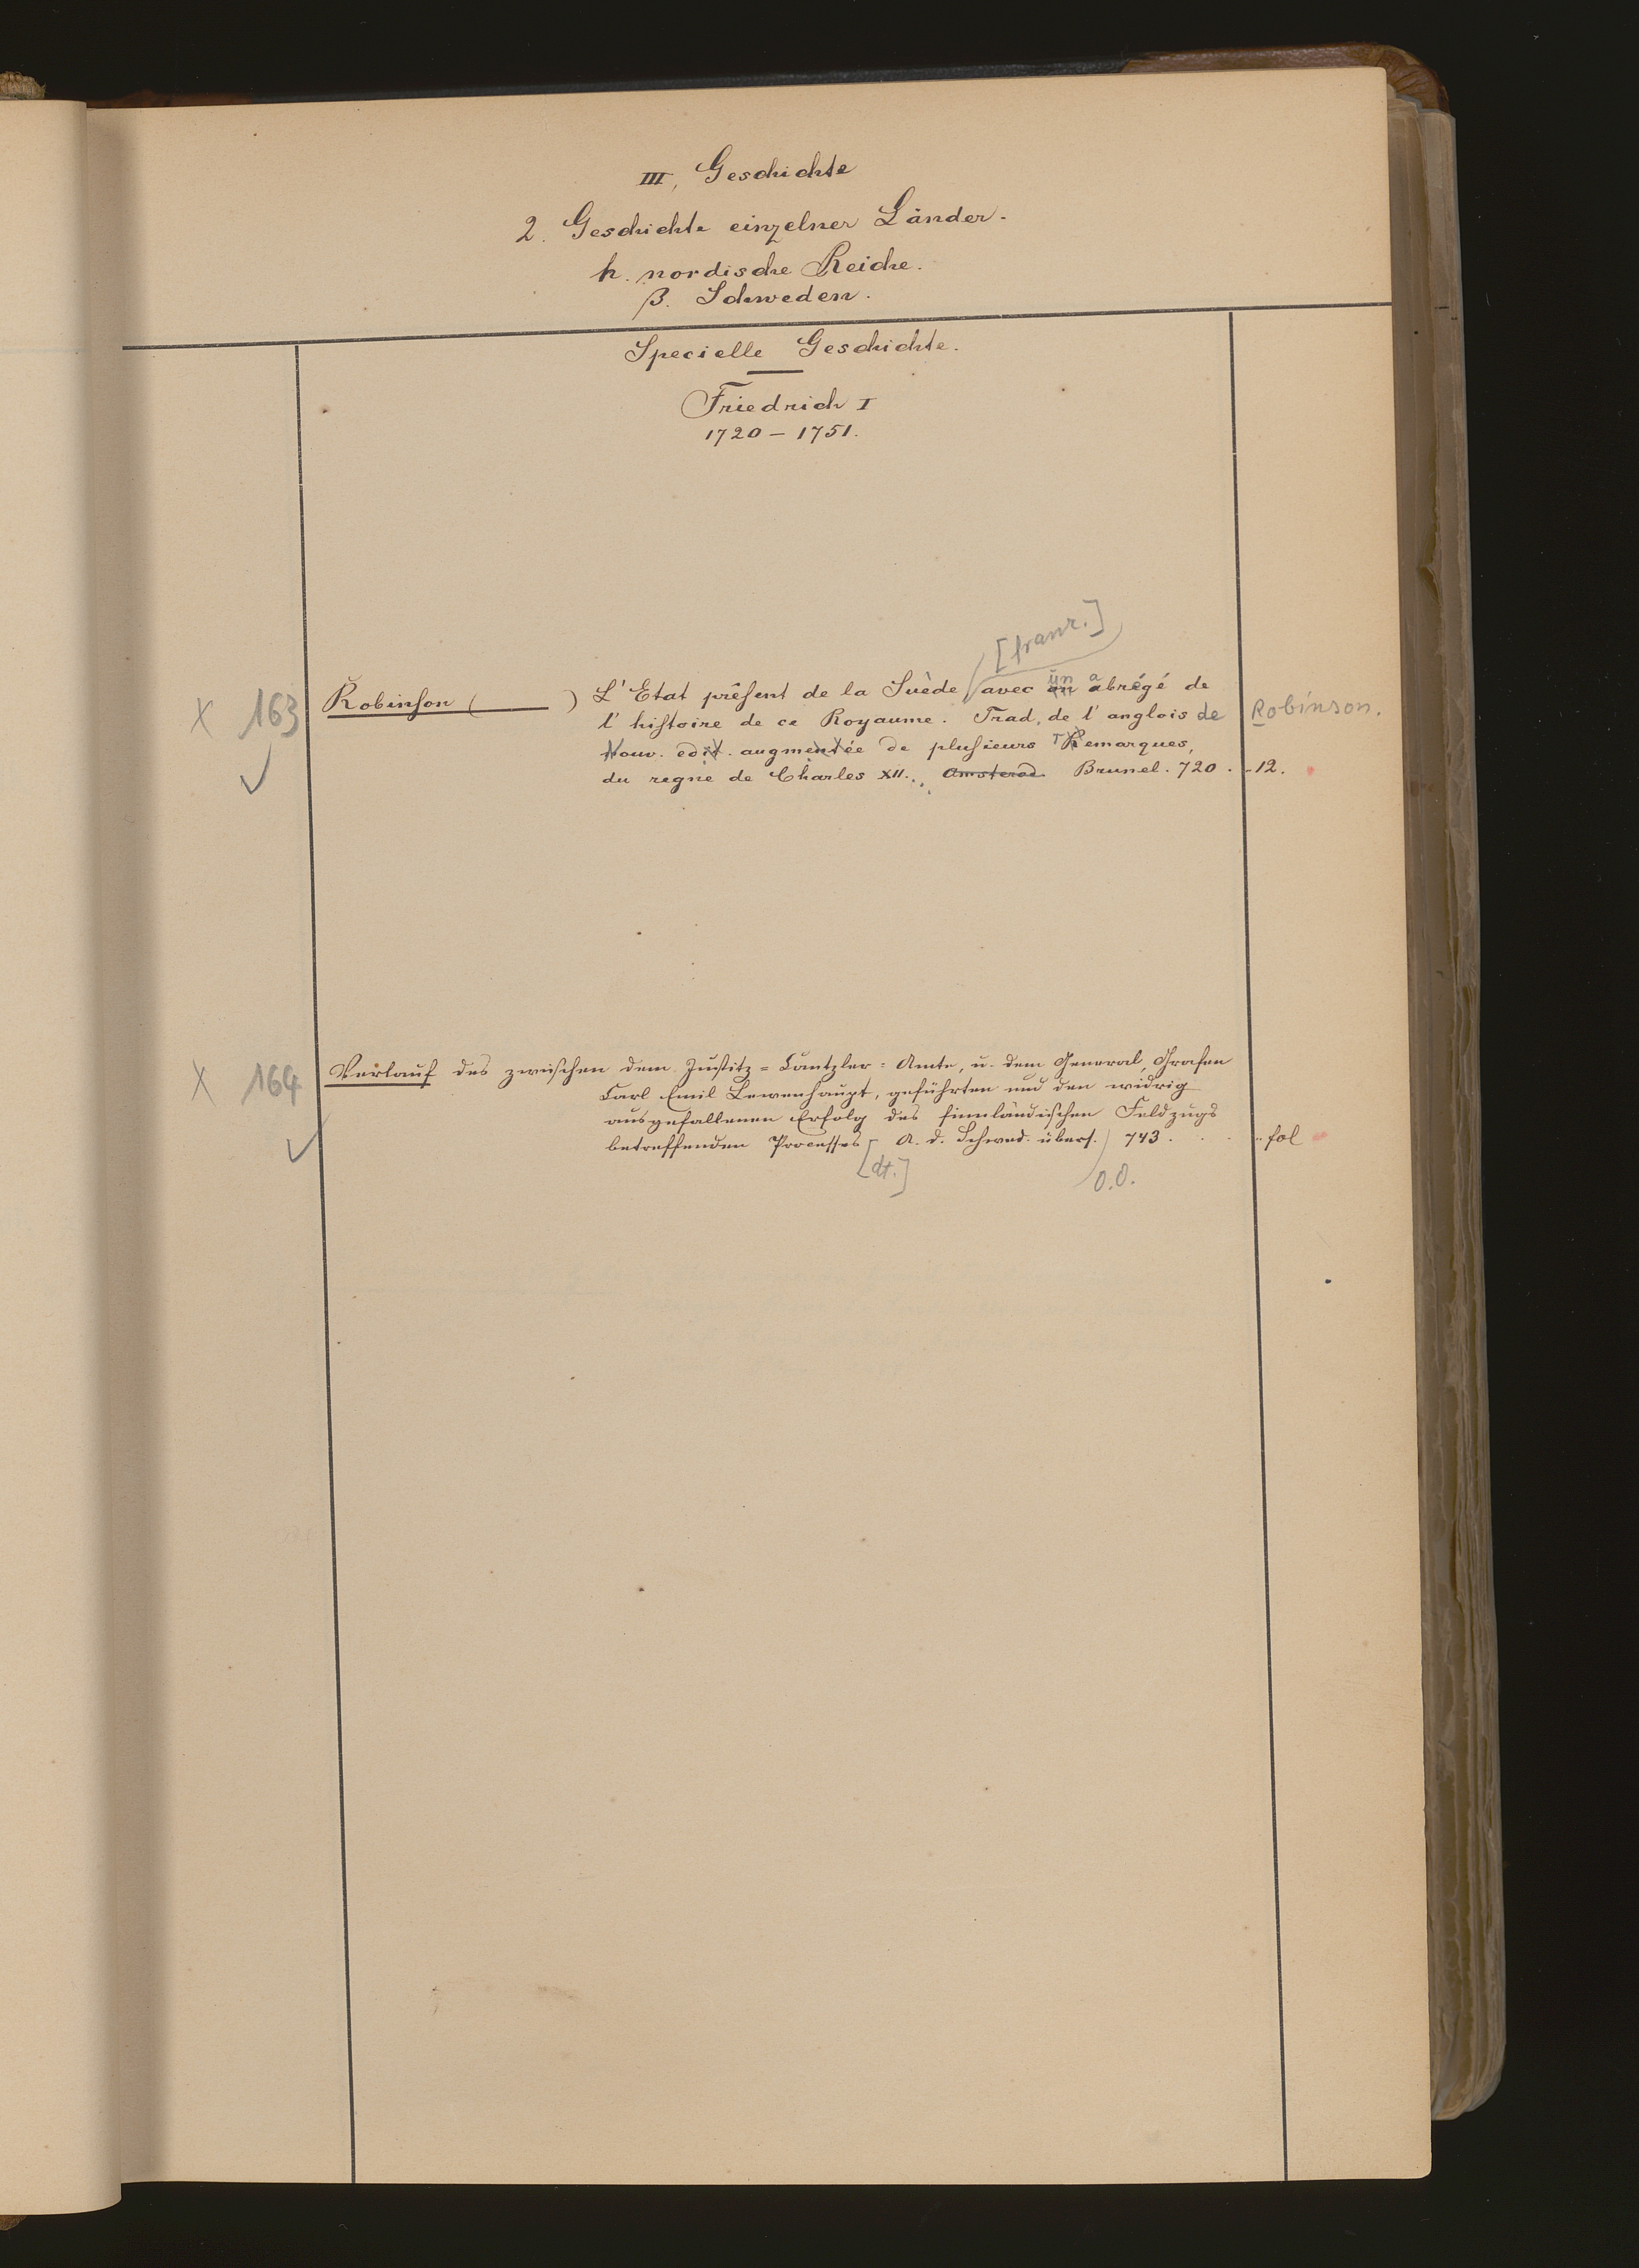 III, Geschichte
2. Geschichte einzelner Länder.
h. nordische Reiche.
β. Schweden.
Specielle Geschichte.
Friedrich I
1720 – 1751.
[franz.]
X 163 Robinson ( ) L'Etat présent de la Suède avec un abrégé de
l'histoire de ce Royaume. Trad. de l'anglois de Robinson.
Nouv. edit. augmentée de plusieurs Remarques,
du regne de Charles XII. Amsterd. Brunel. 720. - 12.
X 164 Verlauf des zwischen dem Justitz = Cantzler = Amte, u. dem General, Grafen
Carl Emil Lewenhaupt, geführten und den widrig
ausgefallenen Erfolg des finnländischen Feldzugs
betreffenden Processes A. d. Schwed. übers. 743. fol
[dt.] O.O.